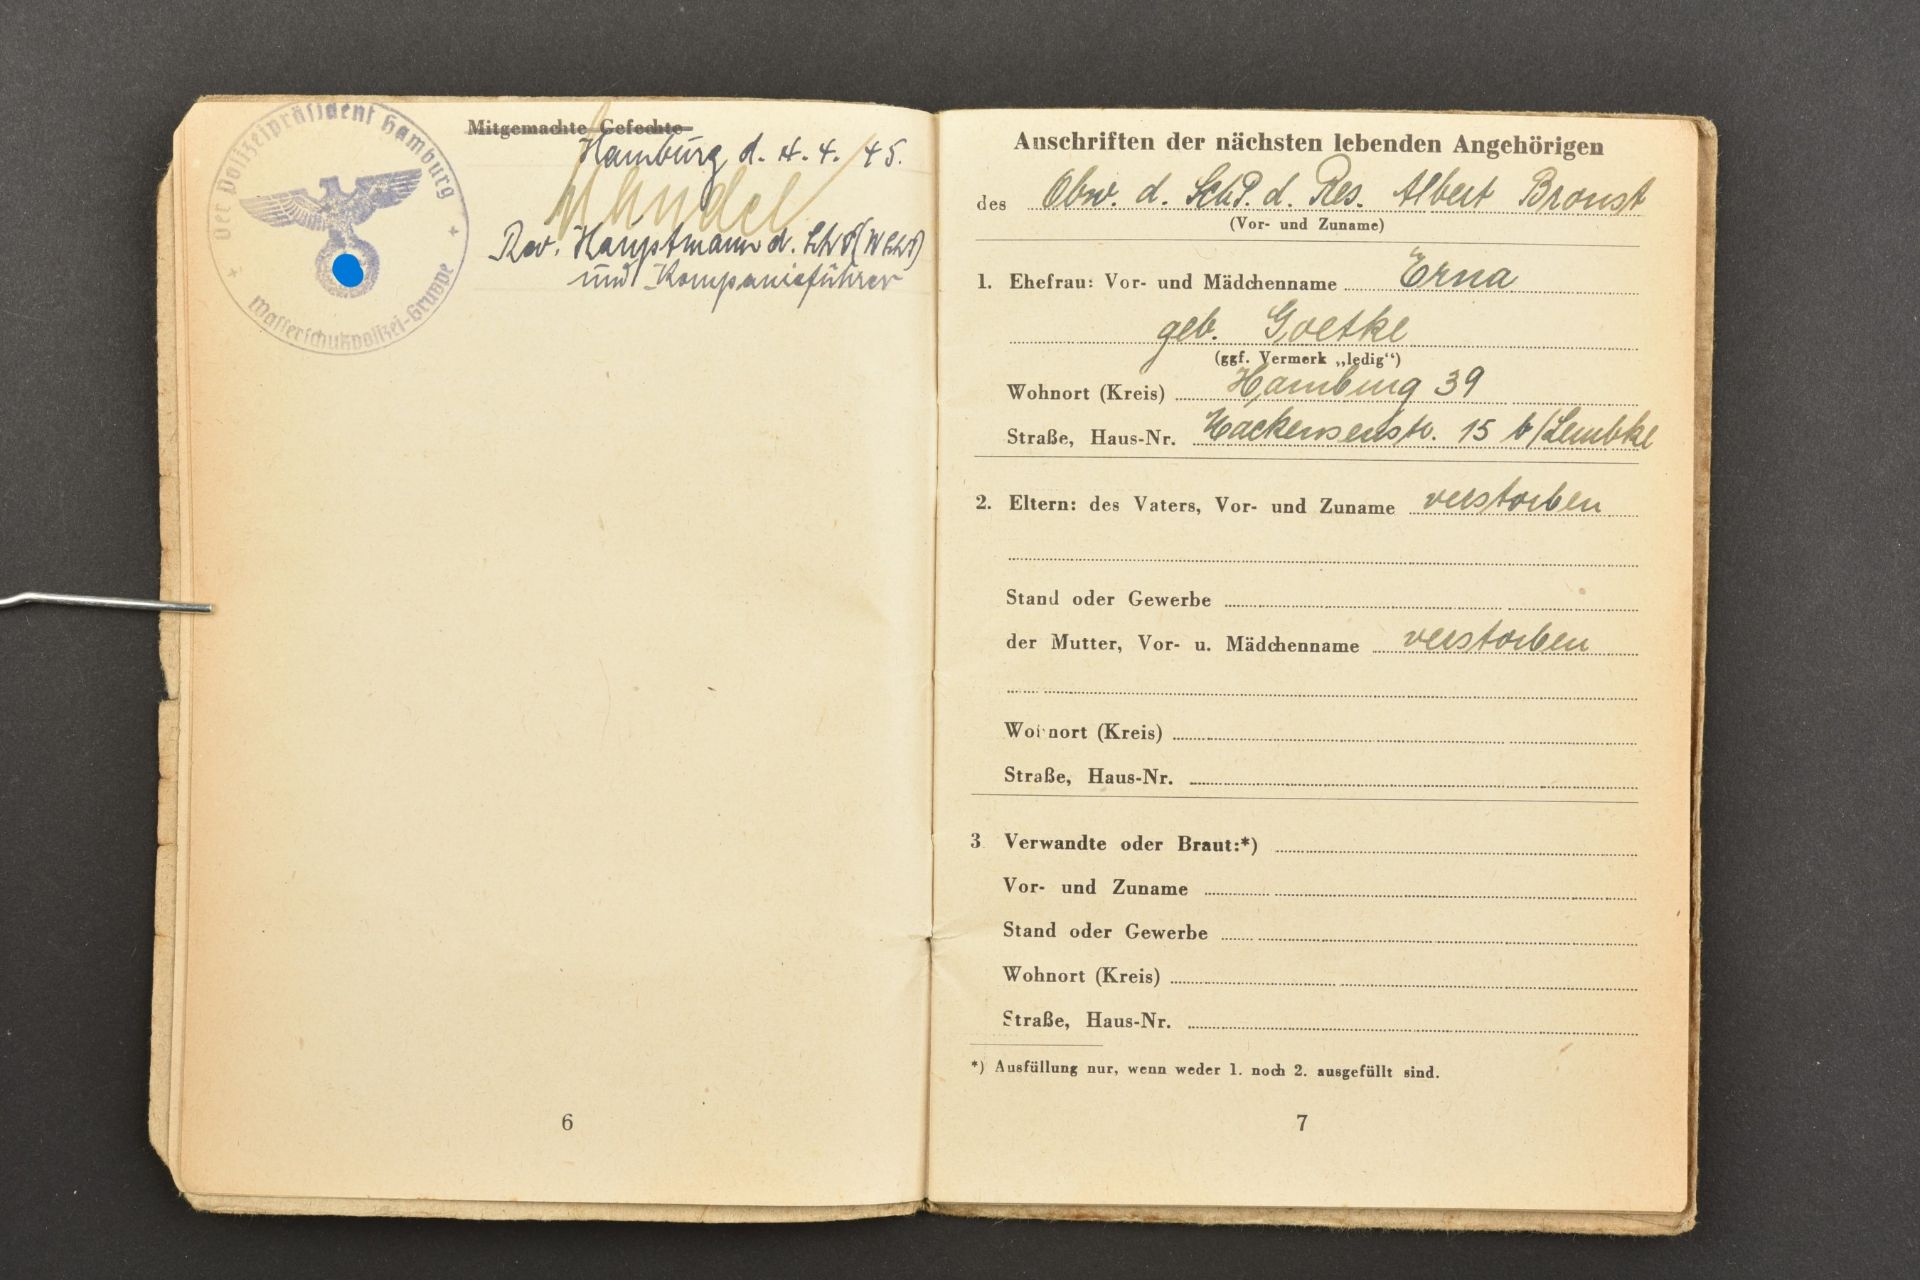 Der Polizeipräsident Hamburg
Wasserschutzpolizei-Gruppe
Mitgemachte Gefechte
Hamburg, d. 4. 4. 45.
Rev. Hauptmann d. SchP (WSchP)
und Kompanieführer
6
Anschriften der nächsten lebenden Angehörigen
des Obw. d. SchP. d. Res. Albert Bronst
(Vor- und Zuname)
1. Ehefrau: Vor- und Mädchenname Erna
geb. Goetke
(ggf. Vermerk „ledig“)
Wohnort (Kreis) Hamburg 39
Straße, Haus-Nr. Mackensenstr. 15 b/Lembke
2. Eltern: des Vaters, Vor- und Zuname verstorben
Stand oder Gewerbe
der Mutter, Vor- u. Mädchenname verstorben
Wohnort (Kreis)
Straße, Haus-Nr.
3 Verwandte oder Braut:*)
Vor- und Zuname
Stand oder Gewerbe
Wohnort (Kreis)
Straße, Haus-Nr.
*) Ausfüllung nur, wenn weder 1. noch 2. ausgefüllt sind.
7